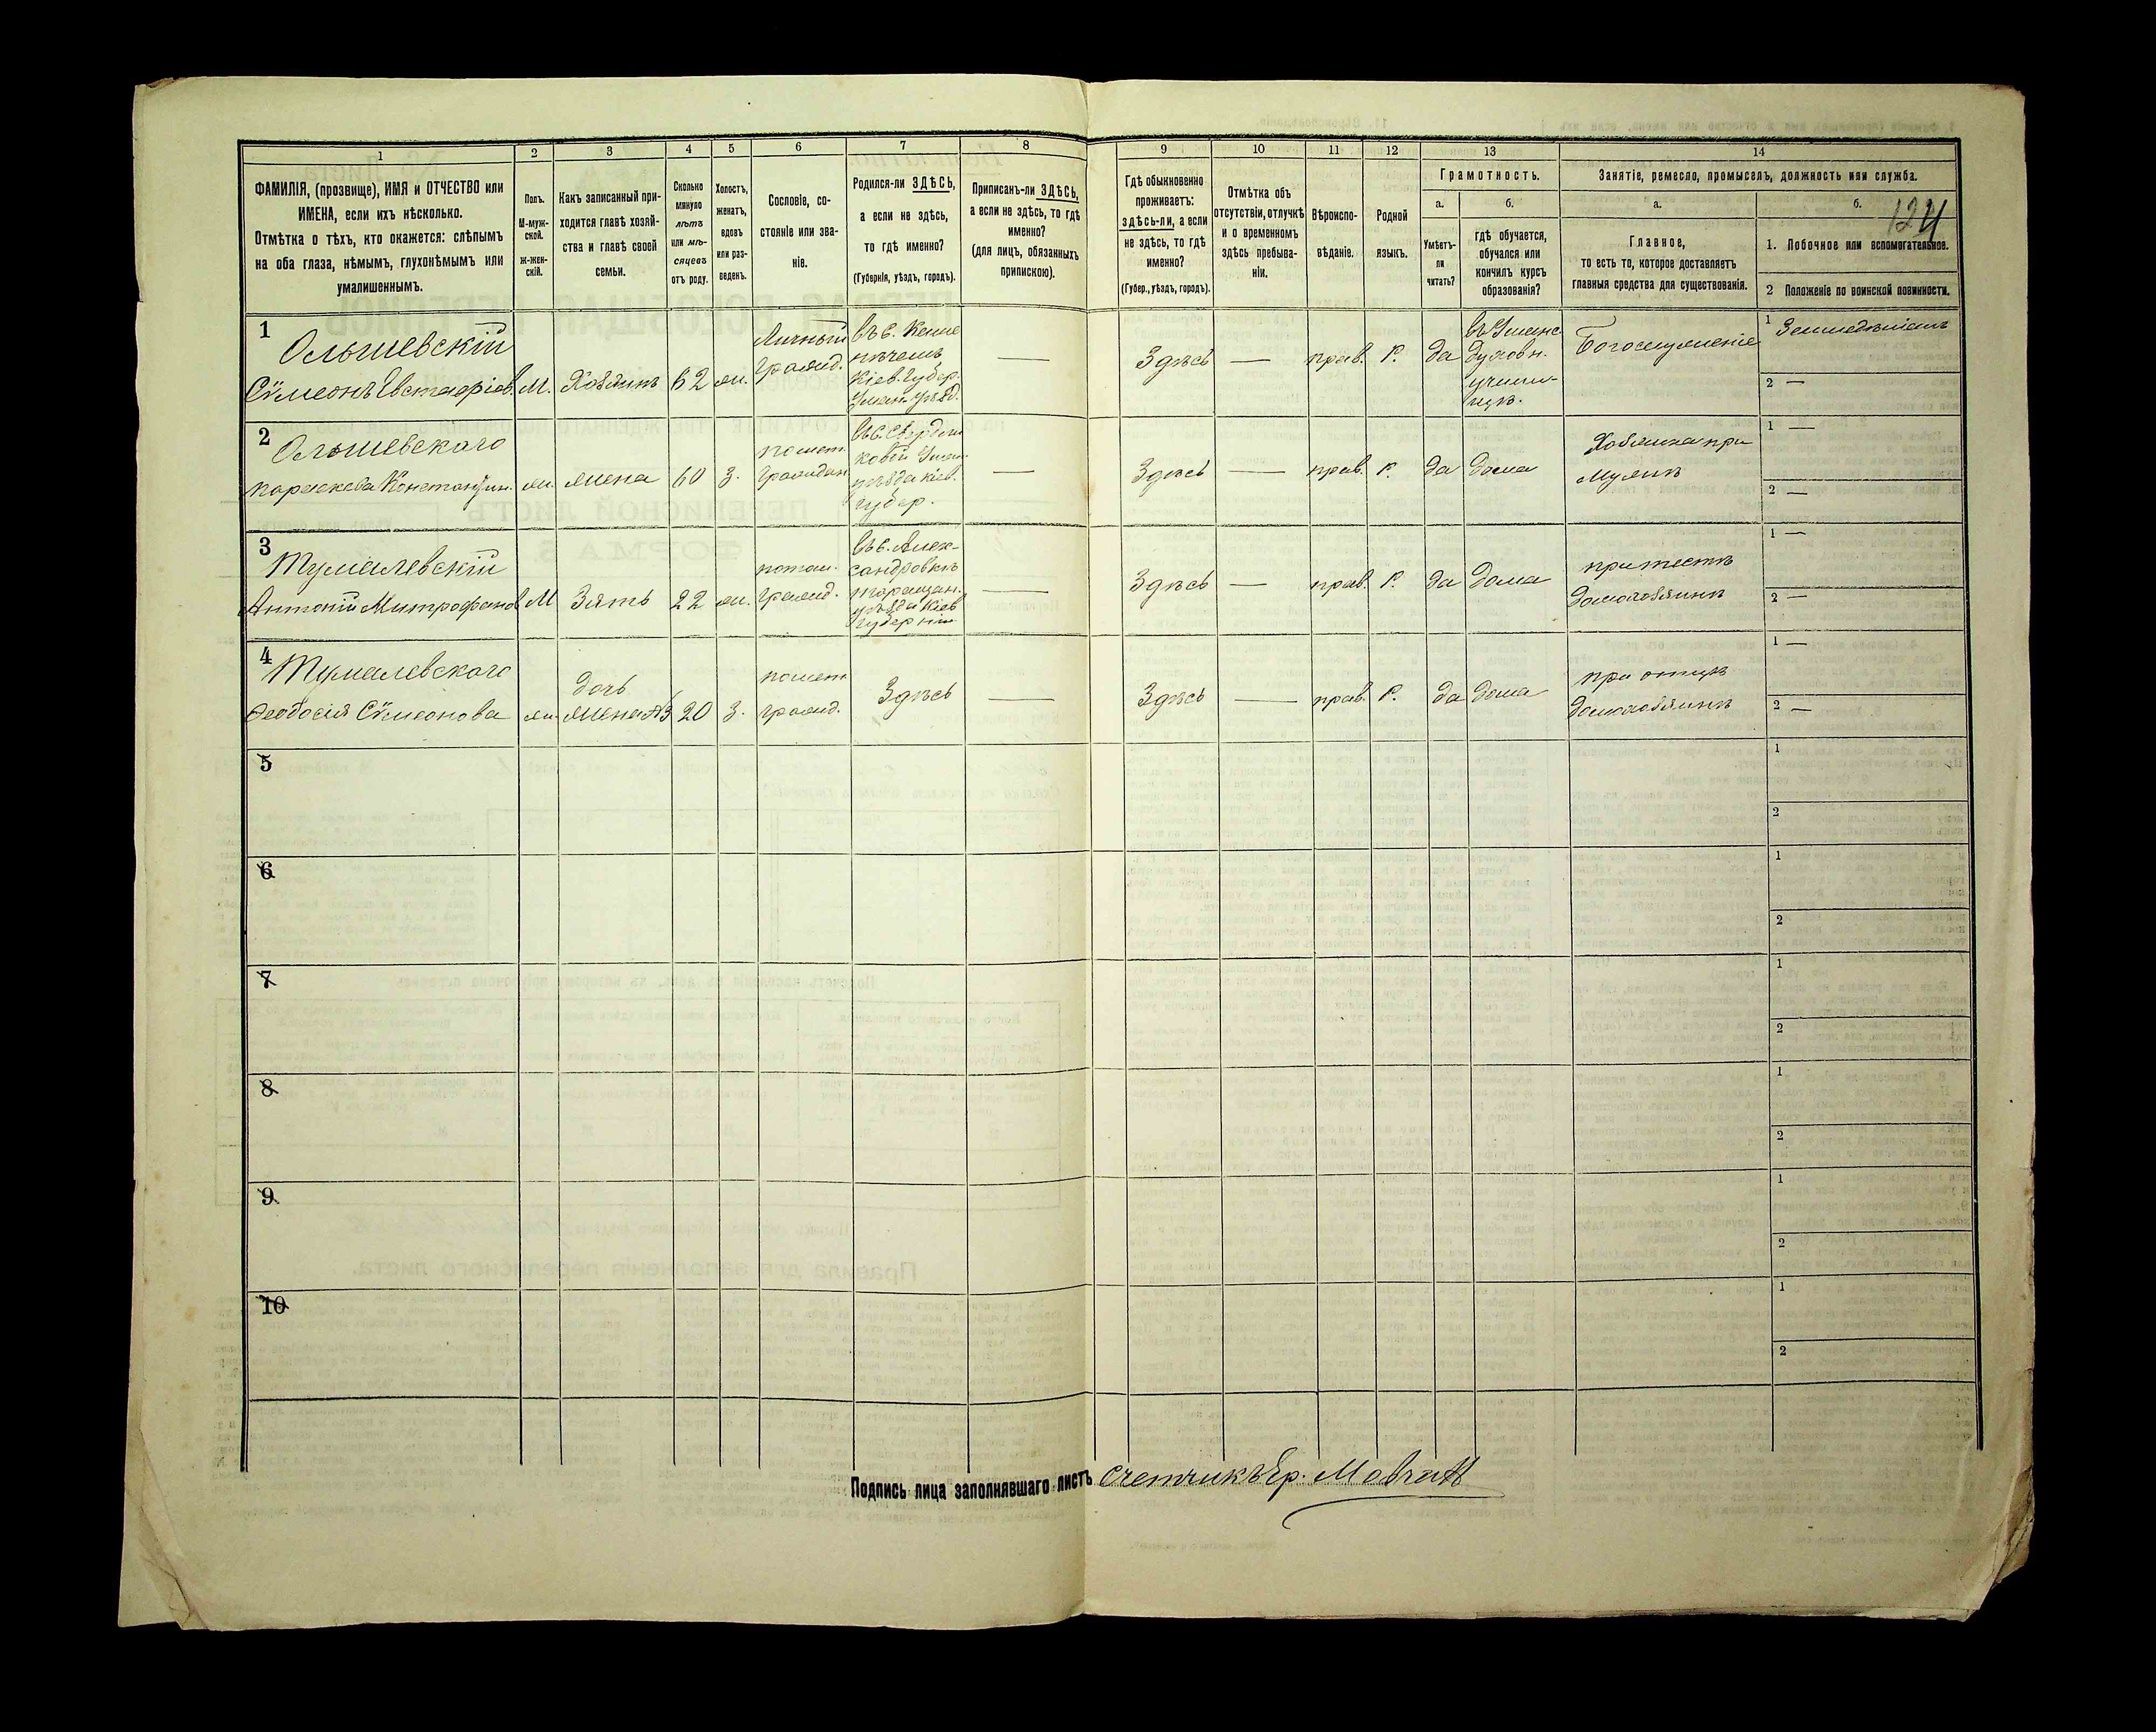 1 2 3 4 5 6 7 8 9 10 11 12 13 14
ФАМИЛІЯ, (прозвище), ИМЯ и ОТЧЕСТВО или
ИМЕНА, если ихъ нѣсколько.
Отмѣтка о тѣхъ, кто окажется: слѣпымъ
на оба глаза, нѣмымъ, глухонѣмымъ или
умалишеннымъ.
Полъ.
М-муж-
ской.
ж-жен-
скій.
Какъ записанный при-
ходится главѣ хозяй-
ства и главѣ своей
семьи.
Сколько
минуло
лѣтъ
или мѣ-
сяцевъ
отъ роду.
Холостъ,
женатъ,
вдовъ
или раз-
веденъ.
Сословіе, со-
стояніе или зва-
ніе.
Родился-ли ЗДѢСЬ,
а если не здѣсь,
то гдѣ именно?
(Губернія, уѣздъ, городъ).
Приписанъ-ли ЗДѢСЬ,
а если не здѣсь, то гдѣ
именно?
(для лицъ, обязанныхъ
припискою).
Гдѣ обыкновенно
проживаетъ:
здѣсь-ли, а если
не здѣсь, то гдѣ
именно?
(Губер., уѣздъ, городъ).
Отмѣтка объ
отсутствіи, отлучкѣ
и о временномъ
здѣсь пребыва-
ніи.
Вѣроиспо-
вѣданіе.
Родной
языкъ.
Грамотность.
а.
Умѣетъ-
ли
читать?
б.
гдѣ обучается,
обучался или
кончилъ курсъ
образованія?
Занятіе, ремесло, промыселъ, должность или служба.
а.
Главное,
то есть то, которое доставляетъ
главныя средства для существованія.
б.
124
1. Побочное или вспомогательное.
2 Положеніе по воинской повинности.
1
Ольшевскій
Сѵмеонъ Евстафіев.
М.
Хозяинъ
62
ж.
Личный
гражд.
Въ с.
Кіев. Губер.
Уман. уѣзд.
—
Здѣсь
—
прав.
Р.
да
въ Уманс
духовн.
учили-
щѣ.
Богослуженіе
1 Земледѣліемъ
2 —
2
Ольшевскаго
Параскева Константин.
ж.
жена
60
З.
почет.
граждан.
Въ с.
уѣзда Кіев.
губер.
—
Здѣсь
—
прав.
Р.
да
дома
Хозяйка при
мужѣ
1 —
2 —
3
Тумалевскій
Антоній Митрофанов
М
Зять
22
ж.
потом.
гражд.
Въ с. Алек-
сандровкѣ
Таращан.
уѣзда Кіев
губерніи
—
Здѣсь
—
прав.
Р.
да
дома
при тестѣ
домохозяинѣ
1 —
2 —
4
Тумалевскаго
Ѳеодосія Сѵмеонова
ж.
дочь
жена №3
20
З.
почет
гражд.
Здѣсь
—
Здѣсь
—
прав.
Р.
да
дома
при отцѣ
домохозяинѣ
1 —
2 —
5
1
2
6
1
2
7
1
2
8
1
2
9
1
2
10
1
2
Подпись лица заполнявшаго листъ Счетчикъ Ер. Мовчан